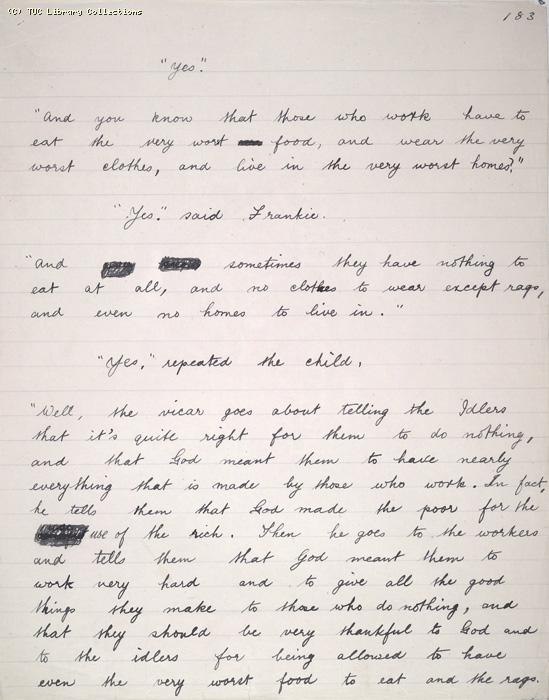 (C) TUC Library Collections
183
"Yes".
"And you know that those who work have to
eat the very worst food, and wear the very
worst clothes, and live in the very worst homes?"
"Yes." said Frankie.
"And sometimes they have nothing to
eat at all, and no clothes to wear except rags,
and even no homes to live in."
"Yes," repeated the child.
"Well, the vicar goes about telling the Idlers
that it's quite right for them to do nothing,
and that God meant them to have nearly
everything that is made by those who work. In fact,
he tells them that God made the poor for the
use of the rich. Then he goes to the workers
and tells them that God meant them to
work very hard and to give all the good
things they make to those who do nothing, and
that they should be very thankful to God and
to the idlers for being allowed to have
even the very worst food to eat and the rags.